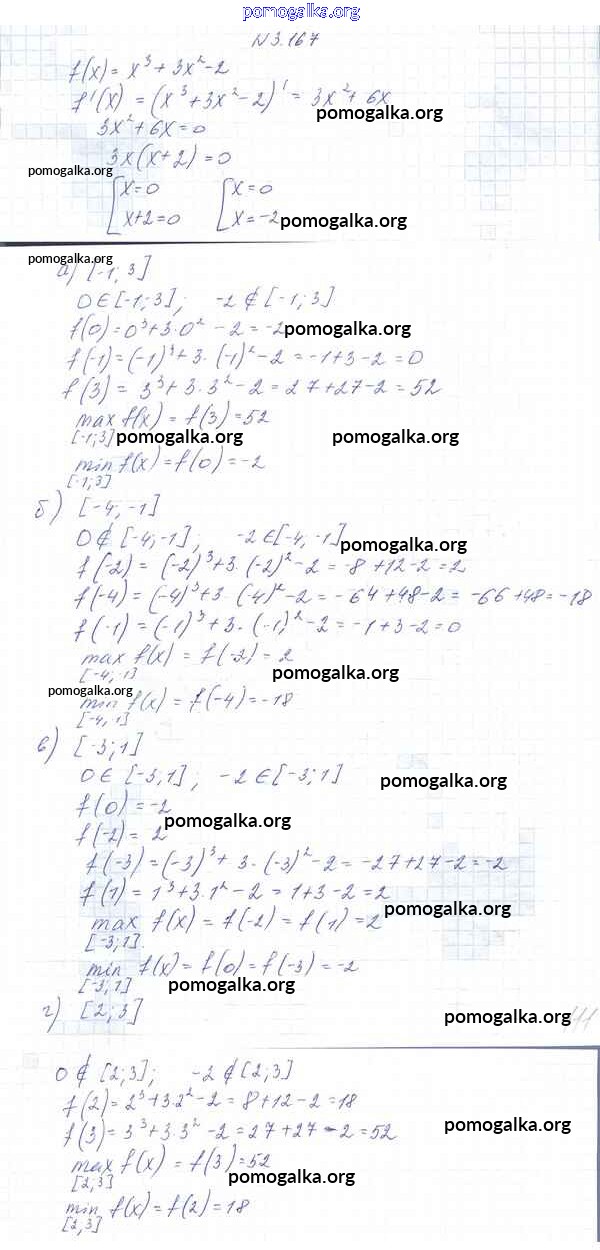 pomogalka.org
N 3.167
f(x) = x³ + 3x² - 2
f'(x) = (x³ + 3x² - 2)' = 3x² + 6x
pomogalka.org
3x² + 6x = 0
3x(x + 2) = 0
pomogalka.org
[x = 0 [x = 0
x + 2 = 0 x = -2
pomogalka.org
pomogalka.org
а) [-1; 3]
0 ∈ [-1; 3]; -2 ∉ [-1; 3]
f(0) = 0³ + 3·0² - 2 = -2
pomogalka.org
f(-1) = (-1)³ + 3·(-1)² - 2 = -1 + 3 - 2 = 0
f(3) = 3³ + 3·3² - 2 = 27 + 27 - 2 = 52
max f(x) = f(3) = 52
[-1; 3]
pomogalka.org pomogalka.org
min f(x) = f(0) = -2
[-1; 3]
б) [-4; -1]
0 ∉ [-4; -1]; -2 ∈ [-4; -1]
pomogalka.org
f(-2) = (-2)³ + 3·(-2)² - 2 = -8 + 12 - 2 = 2
f(-4) = (-4)³ + 3·(-4)² - 2 = -64 + 48 - 2 = -66 + 48 = -18
f(-1) = (-1)³ + 3·(-1)² - 2 = -1 + 3 - 2 = 0
max f(x) = f(-2) = 2
[-4; -1]
pomogalka.org
pomogalka.org
min f(x) = f(-4) = -18
[-4; -1]
в) [-3; 1]
0 ∈ [-3; 1]; -2 ∈ [-3; 1]
pomogalka.org
f(0) = -2
pomogalka.org
f(-2) = 2
f(-3) = (-3)³ + 3·(-3)² - 2 = -27 + 27 - 2 = -2
f(1) = 1³ + 3·1² - 2 = 1 + 3 - 2 = 2
pomogalka.org
max f(x) = f(-2) = f(1) = 2
[-3; 1]
min f(x) = f(0) = f(-3) = -2
[-3; 1]
pomogalka.org
г) [2; 3]
pomogalka.org
0 ∉ [2; 3]; -2 ∉ [2; 3]
f(2) = 2³ + 3·2² - 2 = 8 + 12 - 2 = 18
f(3) = 3³ + 3·3² - 2 = 27 + 27 - 2 = 52
pomogalka.org
max f(x) = f(3) = 52
[2; 3]
pomogalka.org
min f(x) = f(2) = 18
[2; 3]